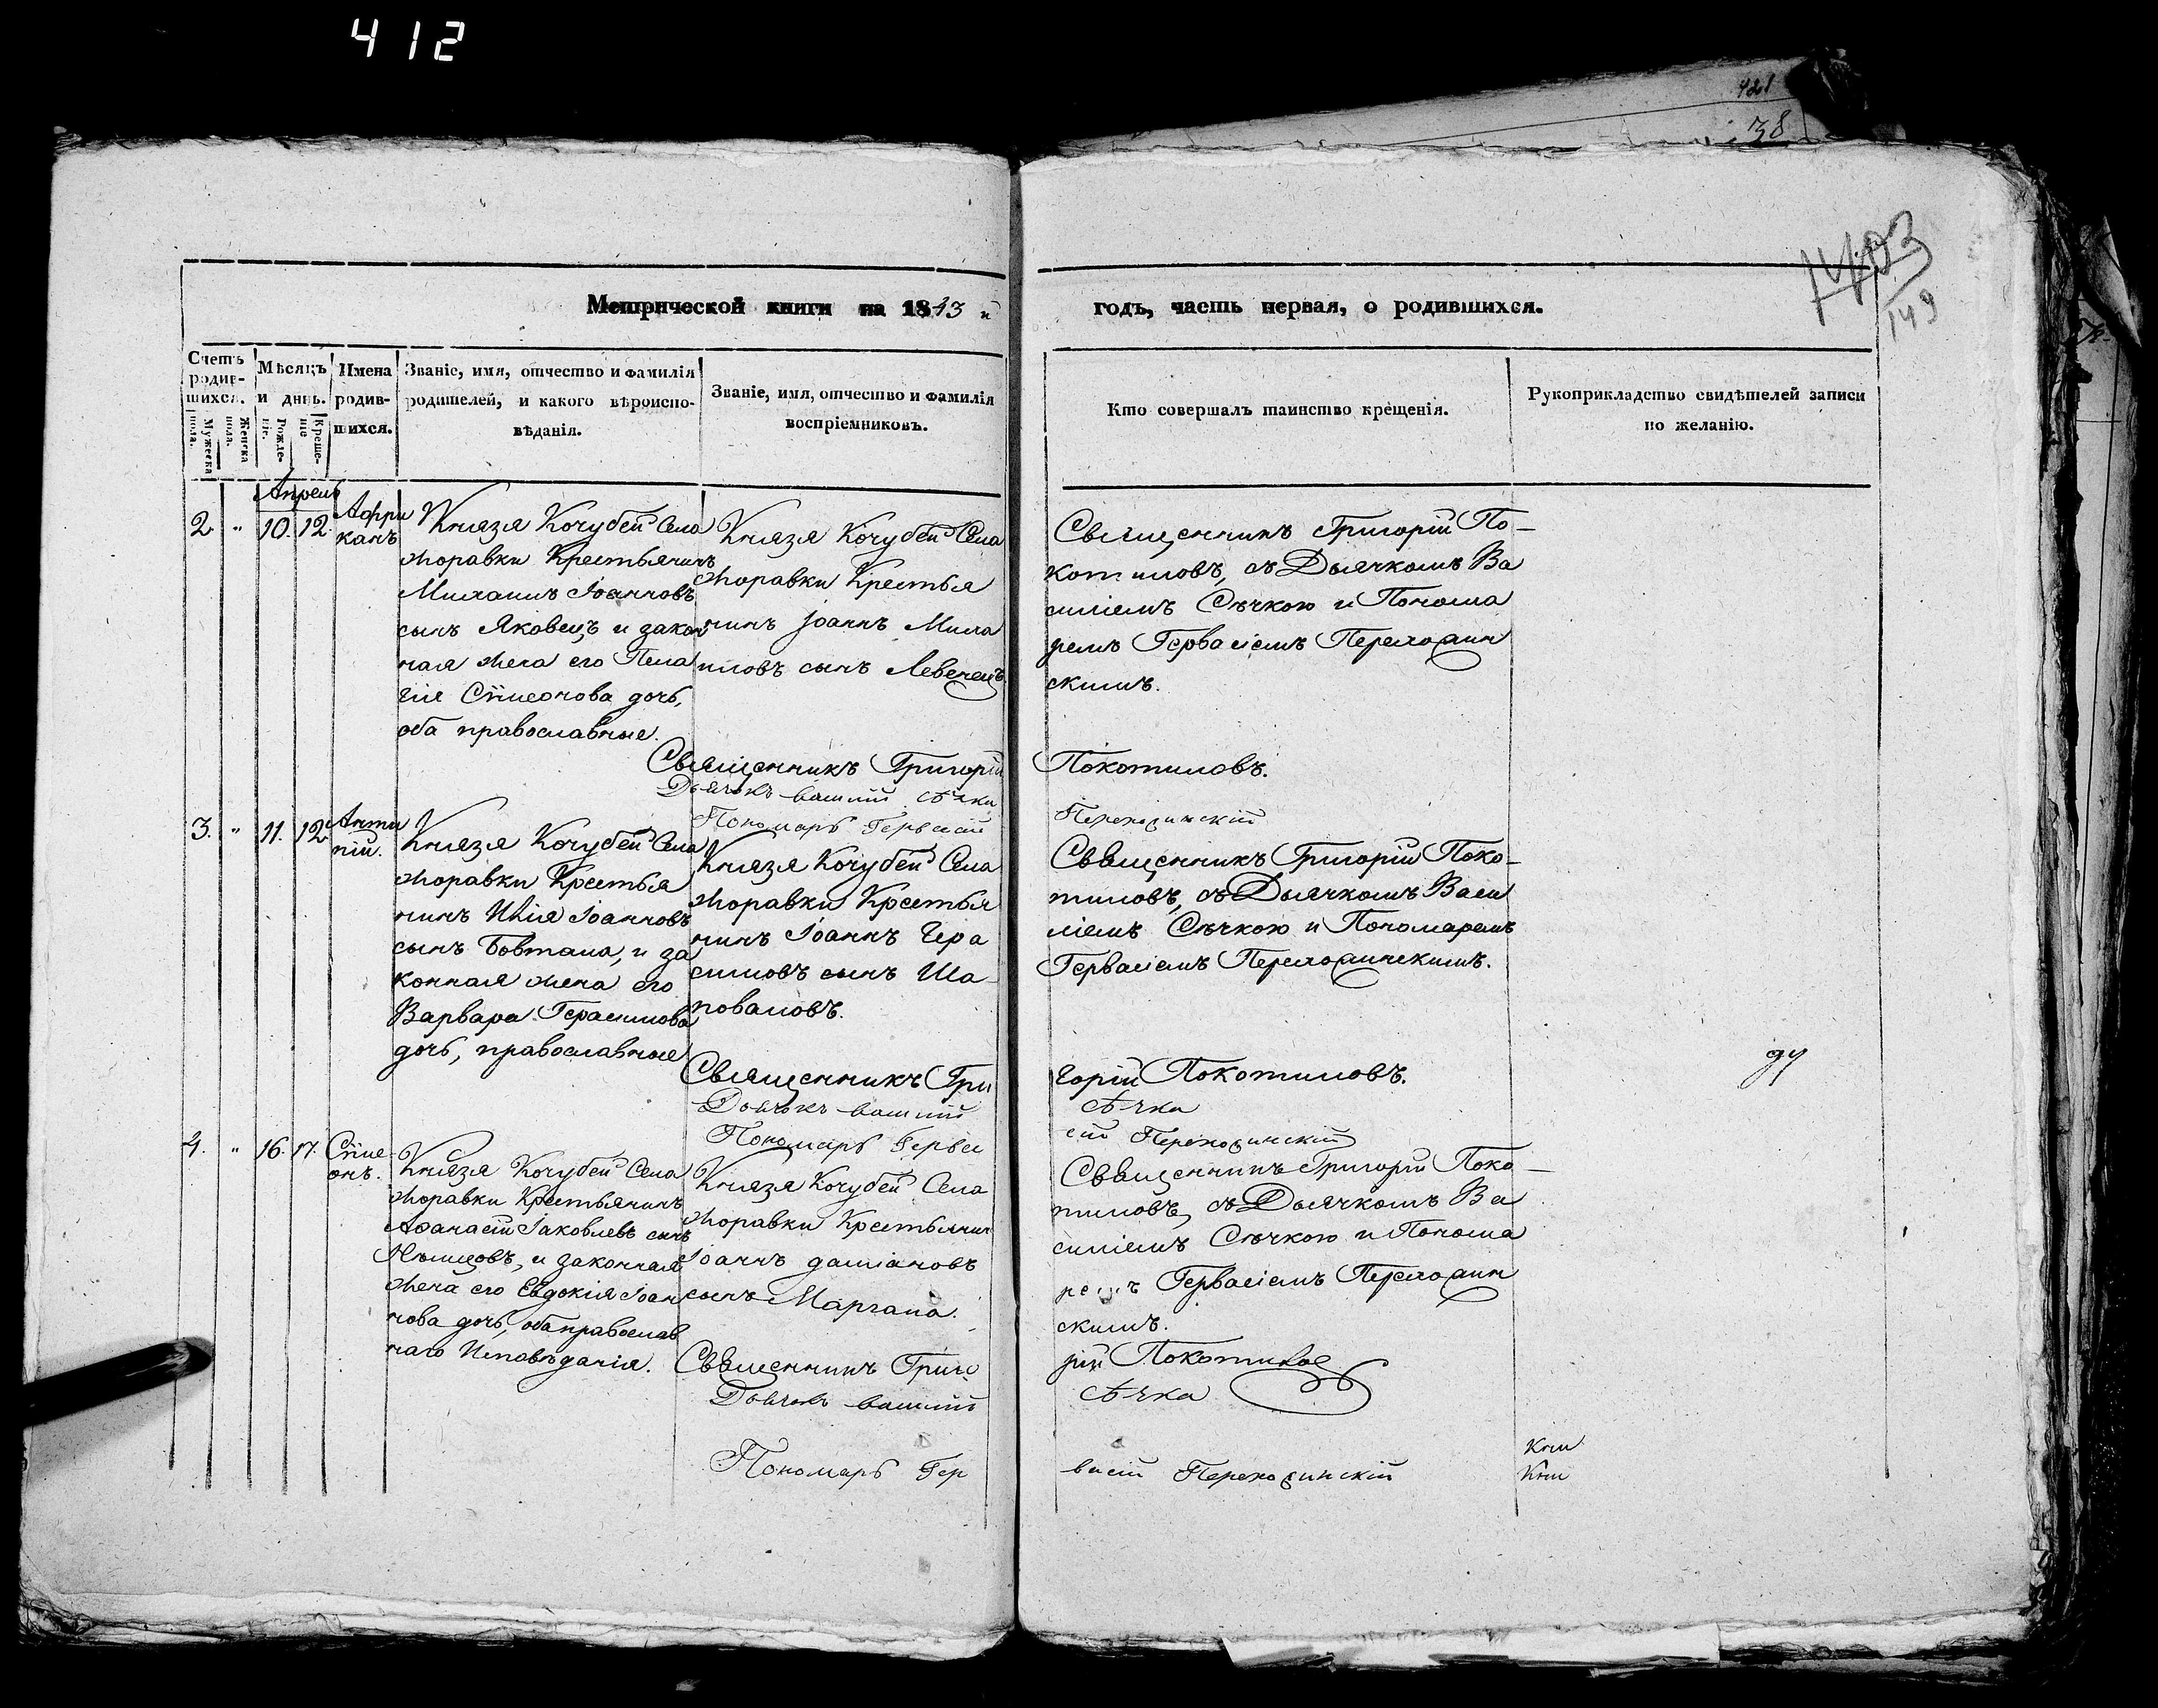 412
421
38
1403
149
Метрической книги на 1843й
годъ, часть первая, о родившихся.
Счетъ родив-шихся.
Мужеска пола.
Женска пола.
Мѣсяцъ и день.
Рожде-нiе.
Креще-нiе
Имена родив-шихся.
Званiе, имя, отчество и фамилiя
родителей, и какого вѣроиспо-
вѣданiя.
Званiе, имя, отчество и фамилiя
воспрiемниковъ.
Кто совершалъ таинство крещенiя.
Рукоприкладство свидѣтелей записи
по желанiю.
Апрель
2 " 10. 12. Афри
канъ
Князя Кочубей Села
Жоравки Крестьянинъ
Михаилъ Iоанновъ
сынъ Яковецъ и закон
ная жена его Пела
гiя Сѵмеонова дочь,
оба православные.
Князя Кочубей Села
Жоравки Крестья
нинъ Iоаннъ Миха
иловъ сынъ Левенецъ.
Священникъ Григорiй По-
котиловъ, съ Дьячкомъ Ва
силiемъ Сѣчкою и Понома
ремъ Гервасiемъ Переходин
скимъ.
Священникъ Григорiй
Покотиловъ.
Дьячокъ василiй Сѣчка
Пономарь Гервасiй
Переходинскiй
3. " 11. 12 Анти
пiй.
Князя Кочубей Села
Жоравки Крестья
нинъ Илiя Iоанновъ
сынъ Бовтала, и за
конная жена его
Варвара Герасимова
дочь, православные
Князя Кочубей Села
Жоравки Крестья
нинъ Iоаннъ Гера
симовъ сынъ Ша-
поваловъ.
Священникъ Григорiй Поко-
тиловъ, съ Дьячкомъ Васи
лiемъ Сѣчкою и Пономаремъ
Гервасiемъ Переходинскимъ.
Священникъ Гри
горiй Покотиловъ.
Дьячокъ василiй
Сѣчка
Пономарь Герва
сiй Переходинскiй
4. " 16. 17. Сѵме-
онъ.
Князя Кочубей Села
Жоравки Крестьянинъ
Аѳанасiй Iаковлевъ сынъ
Нѣмцовъ, и законная
жена его Евдокiя Iоан
нова дочь, оба православ
наго Исповѣданiя.
Князя Кочубей Села
Жоравки Крестьянин
Iоаннъ дамiановъ
сынъ Маргала.
Священникъ Григорiй Поко-
тиловъ, съ Дьячкомъ Ва
силiемъ Сѣчкою и Понома
ремъ Гервасiемъ Переходин
скимъ.
Священникъ Григо
рiй Покотилов
Дьячокъ василiй
Сѣчка
Пономарь Гер
васiй Переходинскiй
ду